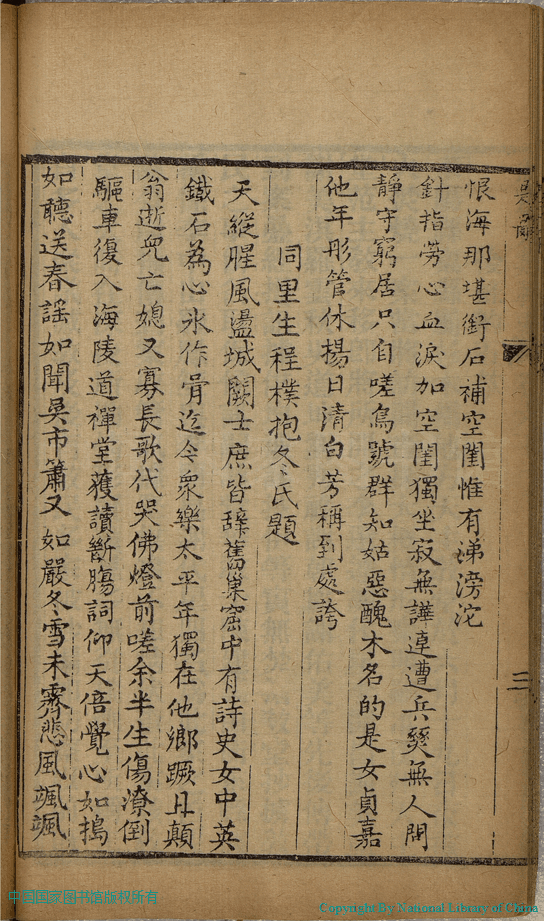 恨海那堪銜石補空閨惟有涕滂沱
針指勞心血淚加空閨獨坐寂無譁連遭兵燹無人問
靜守窮居只自嗟烏號群知姑惡醜木名的是女貞嘉
他年彤管休揚日清白芳稱到處誇
同里生程樸抱冬氏題
天縱腥風盪城闕士庶皆辭舊巢窟中有詩史女中英
鐵石為心氷作骨迄今衆樂太平年獨在他鄉蹶且顛
翁逝兒亡媳又寡長歌代哭佛燈前嗟余半生傷潦倒
驅車復入海陵道禪堂獲讀斷腸詞仰天倍覺心如搗
如聽送春謠如聞吳市簫又如嚴冬雪未霽悲風颯颯
三
中国国家图书馆版权所有
Copyright By National Library of China